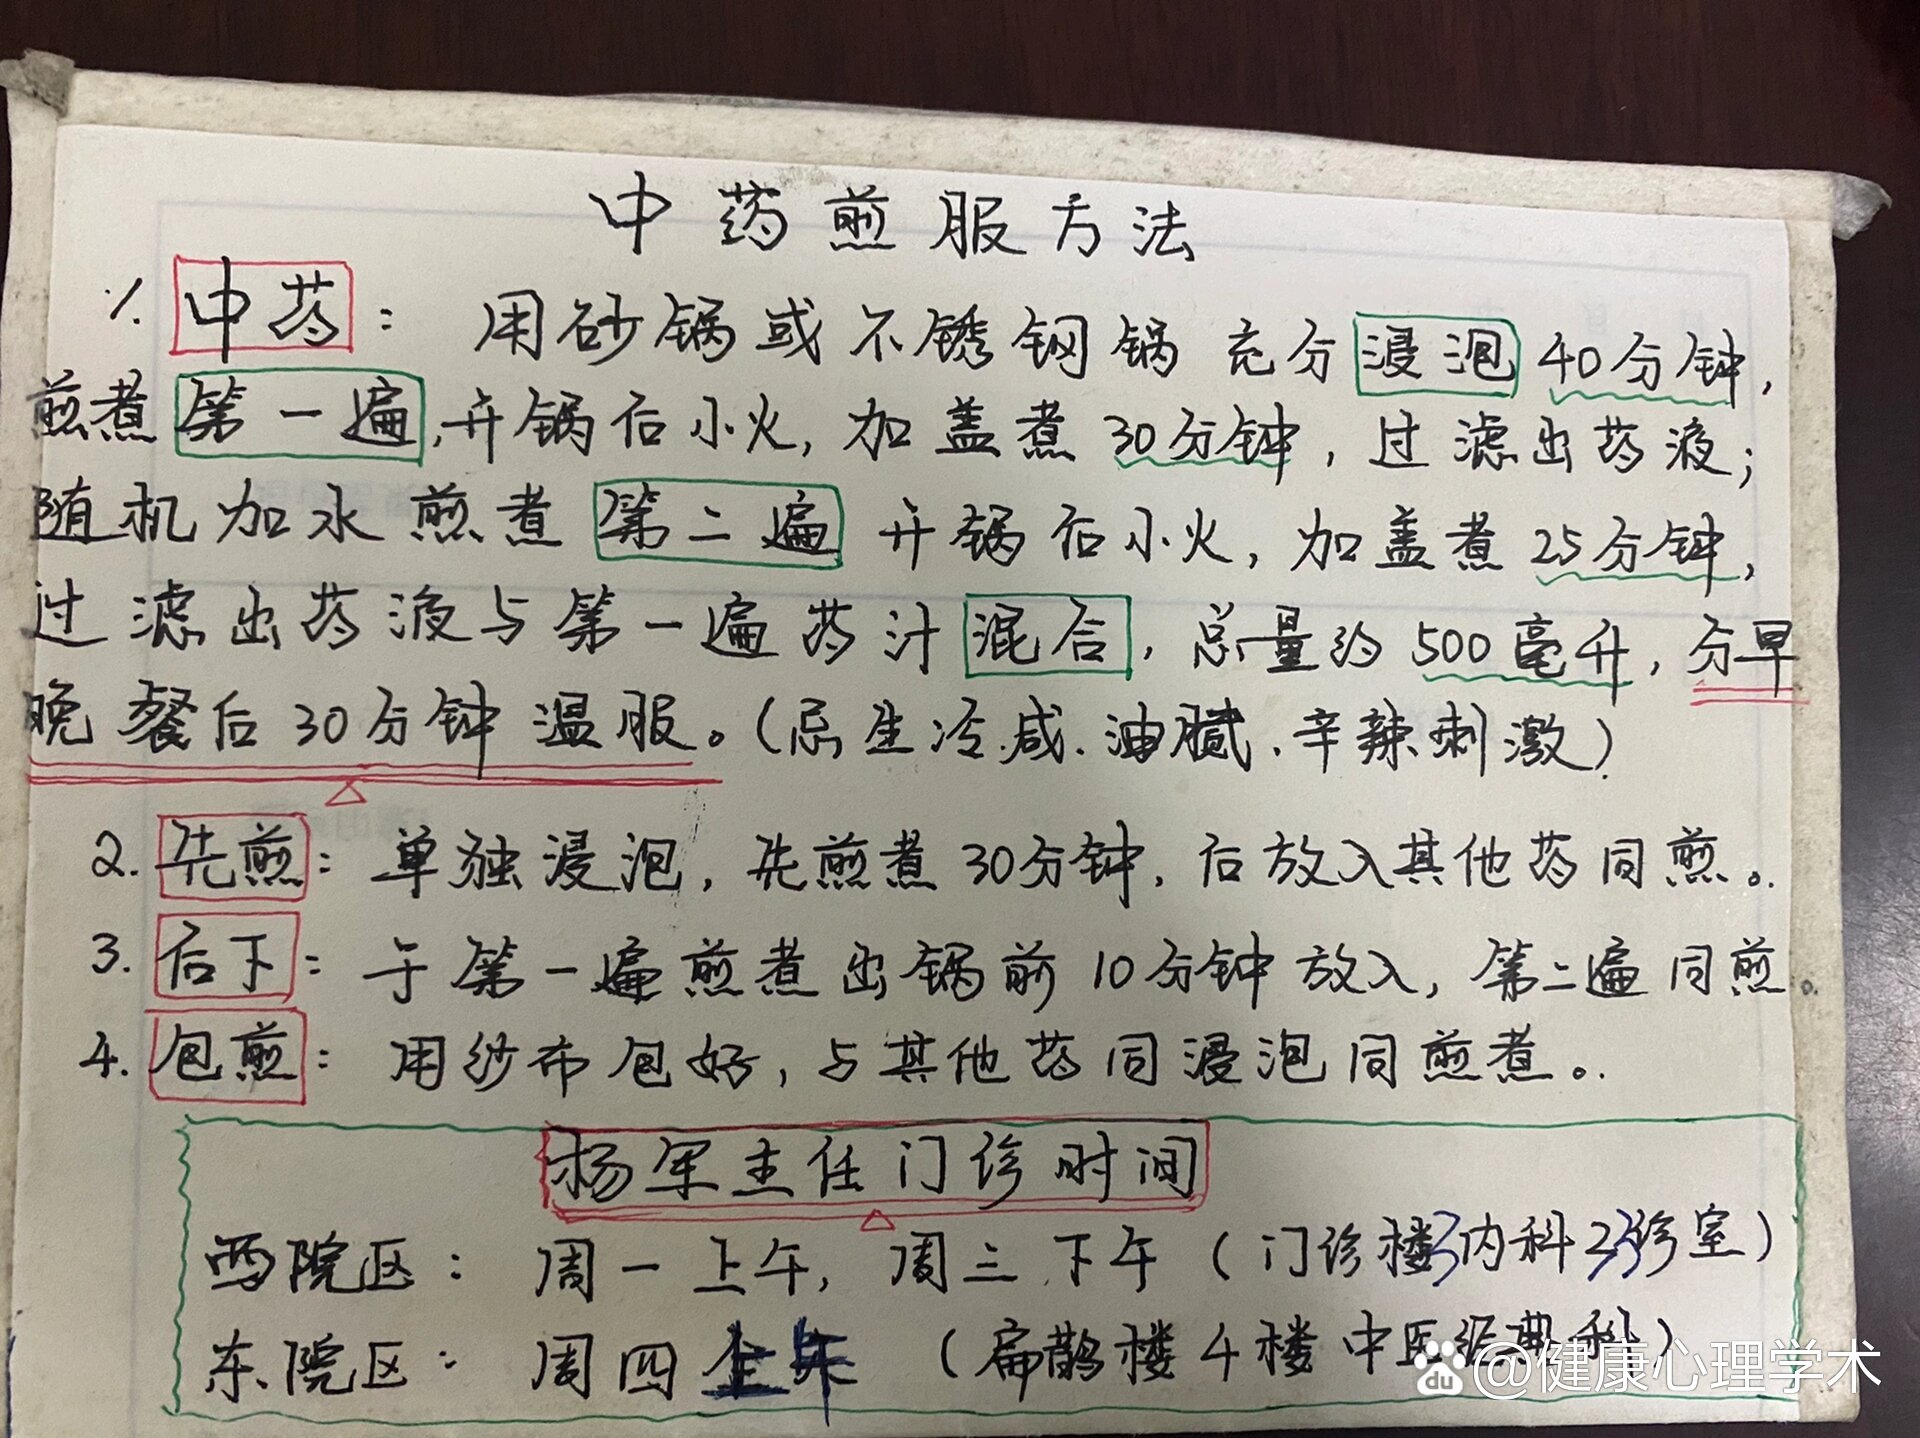 中药煎服方法
1. 中药：用砂锅或不锈钢锅充分浸泡40分钟，
煎煮第一遍，开锅后小火，加盖煮30分钟，过滤出药液；
随机加水煎煮第二遍 开锅后小火，加盖煮25分钟，
过滤出药液与第一遍药汁混合，总量约500毫升，分早
晚餐后30分钟温服。（忌生冷.咸.油腻.辛辣刺激）
2. 先煎：单独浸泡，先煎煮30分钟，后放入其他药同煎。
3. 后下：于第一遍煎煮出锅前10分钟放入，第二遍同煎。
4. 包煎：用纱布包好，与其他药同浸泡同煎煮。
杨军主任门诊时间
西院区：周一上午，周三下午（门诊楼内科诊室）
东院区：周四（扁鹊楼4楼中医经典科）
du @健康心理学术